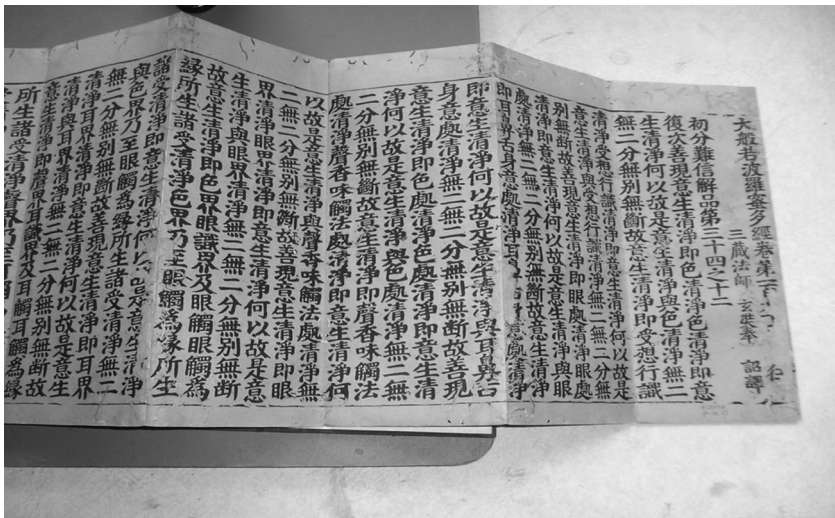 大般若波羅蜜多經卷第一
三藏法師 玄奘奉 詔譯
初分難信解品第三十四之十二
復次善現意生清淨即色清淨色清淨即意
生清淨何以故是意生清淨與色清淨無二
無二分無別無斷故意生清淨即受想行識
清淨受想行識清淨即意生清淨何以故是
意生清淨與受想行識清淨無二無二分無
別無斷故善現意生清淨即眼處清淨眼處
清淨即意生清淨何以故是意生清淨與眼
處清淨無二無二分無別無斷故意生清淨
即耳鼻舌身意處清淨耳鼻舌身意處清淨
即意生清淨何以故是意生清淨與耳鼻舌
身意處清淨無二無二分無別無斷故善現
意生清淨即色處清淨色處清淨即意生清
淨何以故是意生清淨與色處清淨無二無
二分無別無斷故意生清淨即聲香味觸法
處清淨聲香味觸法處清淨即意生清淨何
以故是意生清淨與聲香味觸法處清淨無
二無二分無別無斷故善現意生清淨即眼
界清淨眼界清淨即意生清淨何以故是意
生清淨與眼界清淨無二無二分無別無斷
故意生清淨即色界眼識界及眼觸眼觸爲
緣所生諸受清淨色界乃至眼觸爲緣所生
諸受清淨即意生清淨何以故是意生清淨
與色界乃至眼觸爲緣所生諸受清淨無二
無二分無別無斷故善現意生清淨即耳界
清淨耳界清淨即意生清淨何以故是意生
清淨與耳界清淨無二無二分無別無斷故
意生清淨即聲界耳識界及耳觸耳觸爲緣
所生諸受清淨聲界乃至耳觸